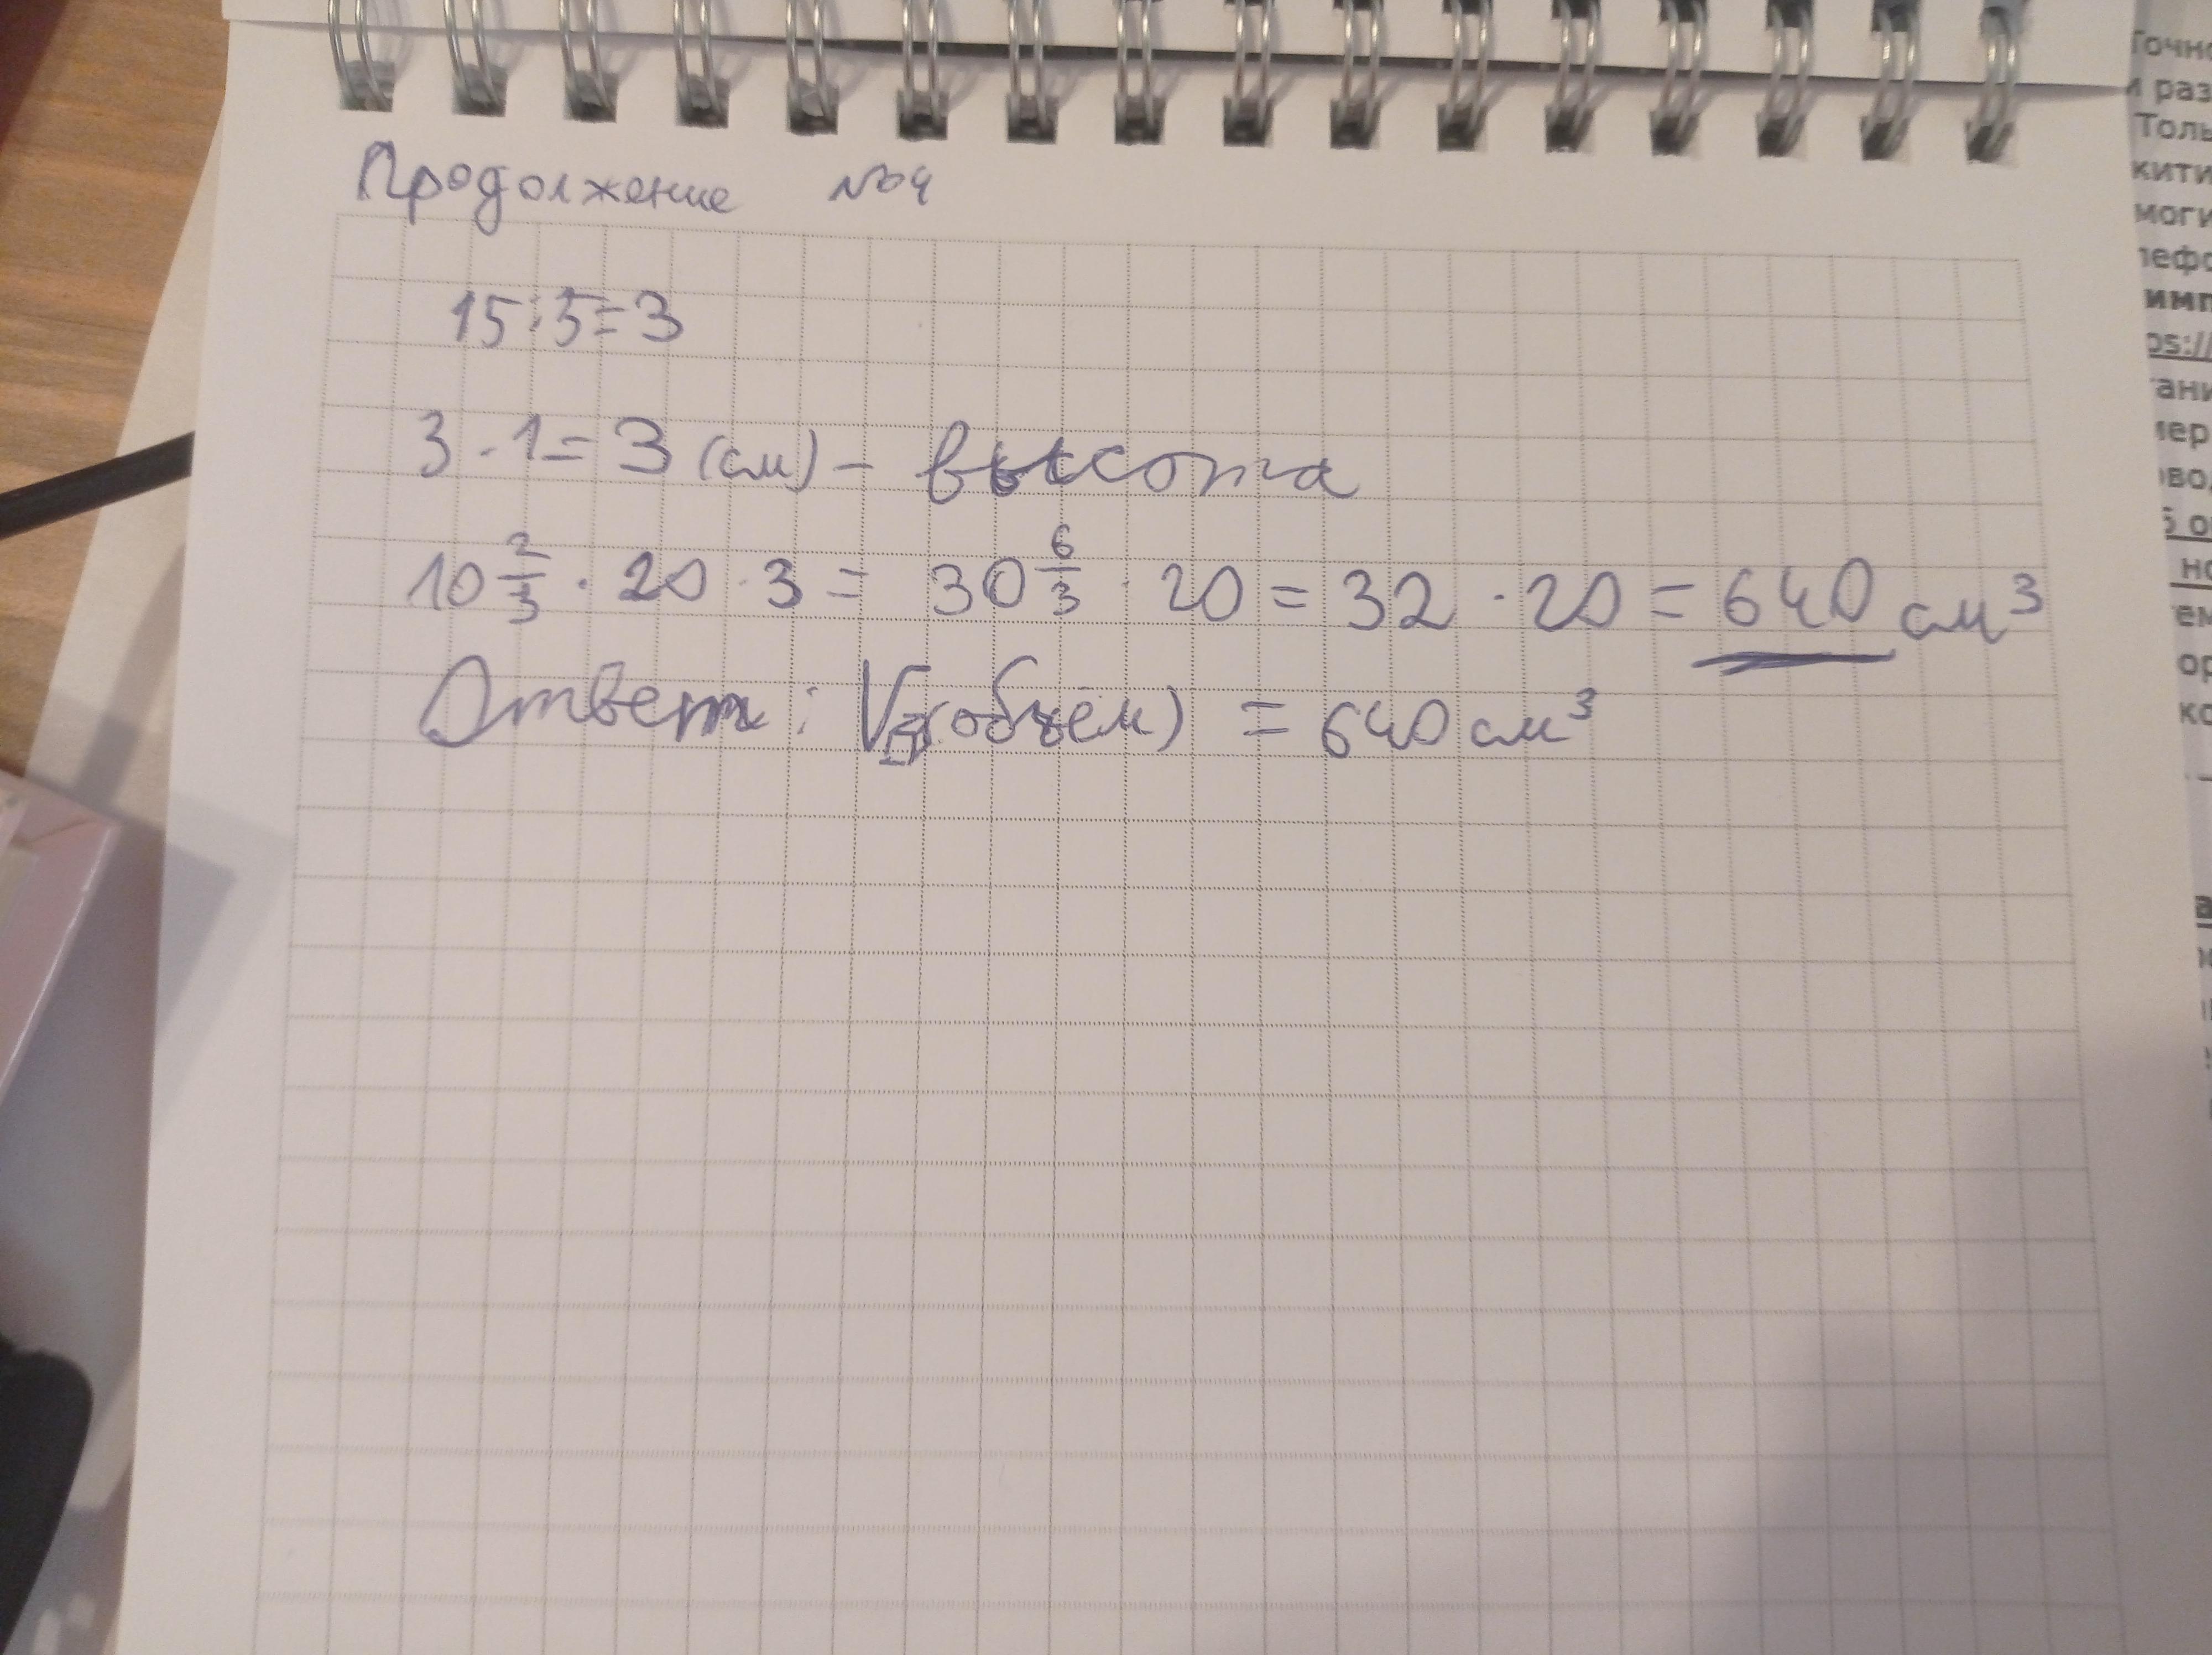 Продолжение №4
15:5=3
3·1=3(см) – высота
10 2/3 · 20 · 3 = 30 6/3 · 20 = 32 · 20 = 640 см³
Ответ: V (объём) = 640 см³
Точно
и раз
Толь
кити
моги
лефо
имп
ps://
ани
мер
ово
но
ем
ор
ко